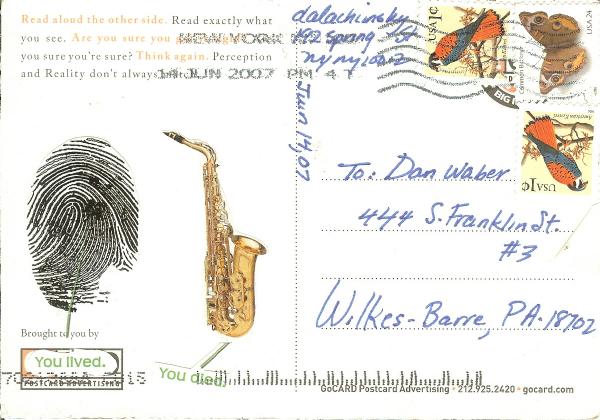 Read aloud the other side. Read exactly what
you see. Are you sure you
you sure you're sure? Think again. Perception
and Reality don't always
NEW YORK
14 JUN 2007 PM 4 T
dalachinsky
192 spring St
ny ny 10012
Jun 14, 07
USA 1¢
USA 24
American Kestrel
USA 1¢
BIG
To: Dan Waber
444 S. Franklin St.
#3
Wilkes-Barre, PA. 18702
Brought to you by
You lived.
POSTCARD ADVERTISING
You died.
GoCARD Postcard Advertising • 212.925.2420 • gocard.com